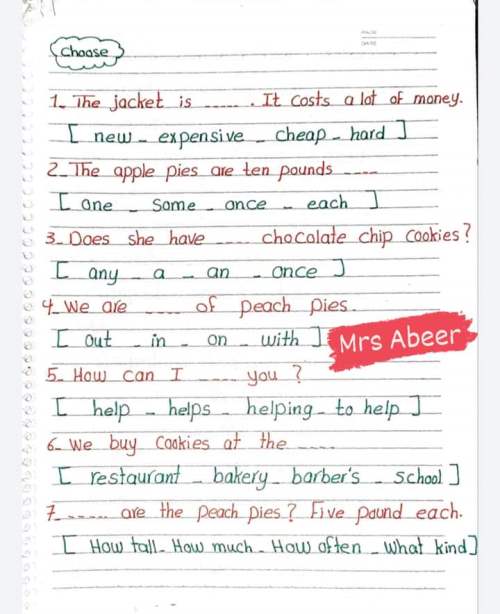 Choose
1- The jacket is ..... . It costs a lot of money.
[ new - expensive - cheap - hard ]
2- The apple pies are ten pounds ....
[ one - some - once - each ]
3- Does she have .... chocolate chip cookies?
[ any - a - an - once ]
4- We are .... of peach pies.
[ out - in - on - with ]
Mrs Abeer
5- How can I .... you ?
[ help - helps - helping - to help ]
6- We buy cookies at the ....
[ restaurant - bakery - barber's - school ]
7- ..... are the peach pies? Five pound each.
[ How tall - How much - How often - What kind ]